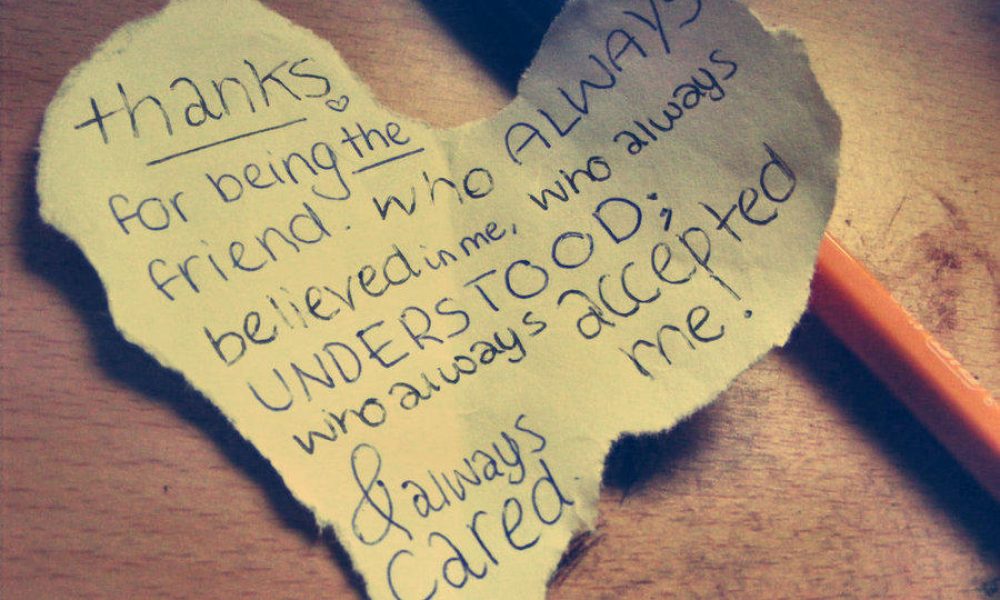 thanks.
for being the
friend. who ALWAYS
believed in me, who always
UNDERSTOOD;
who always accepted
me!
& always
cared.